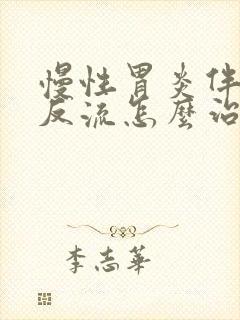 慢性胃炎伴
反流怎麼治
李志華